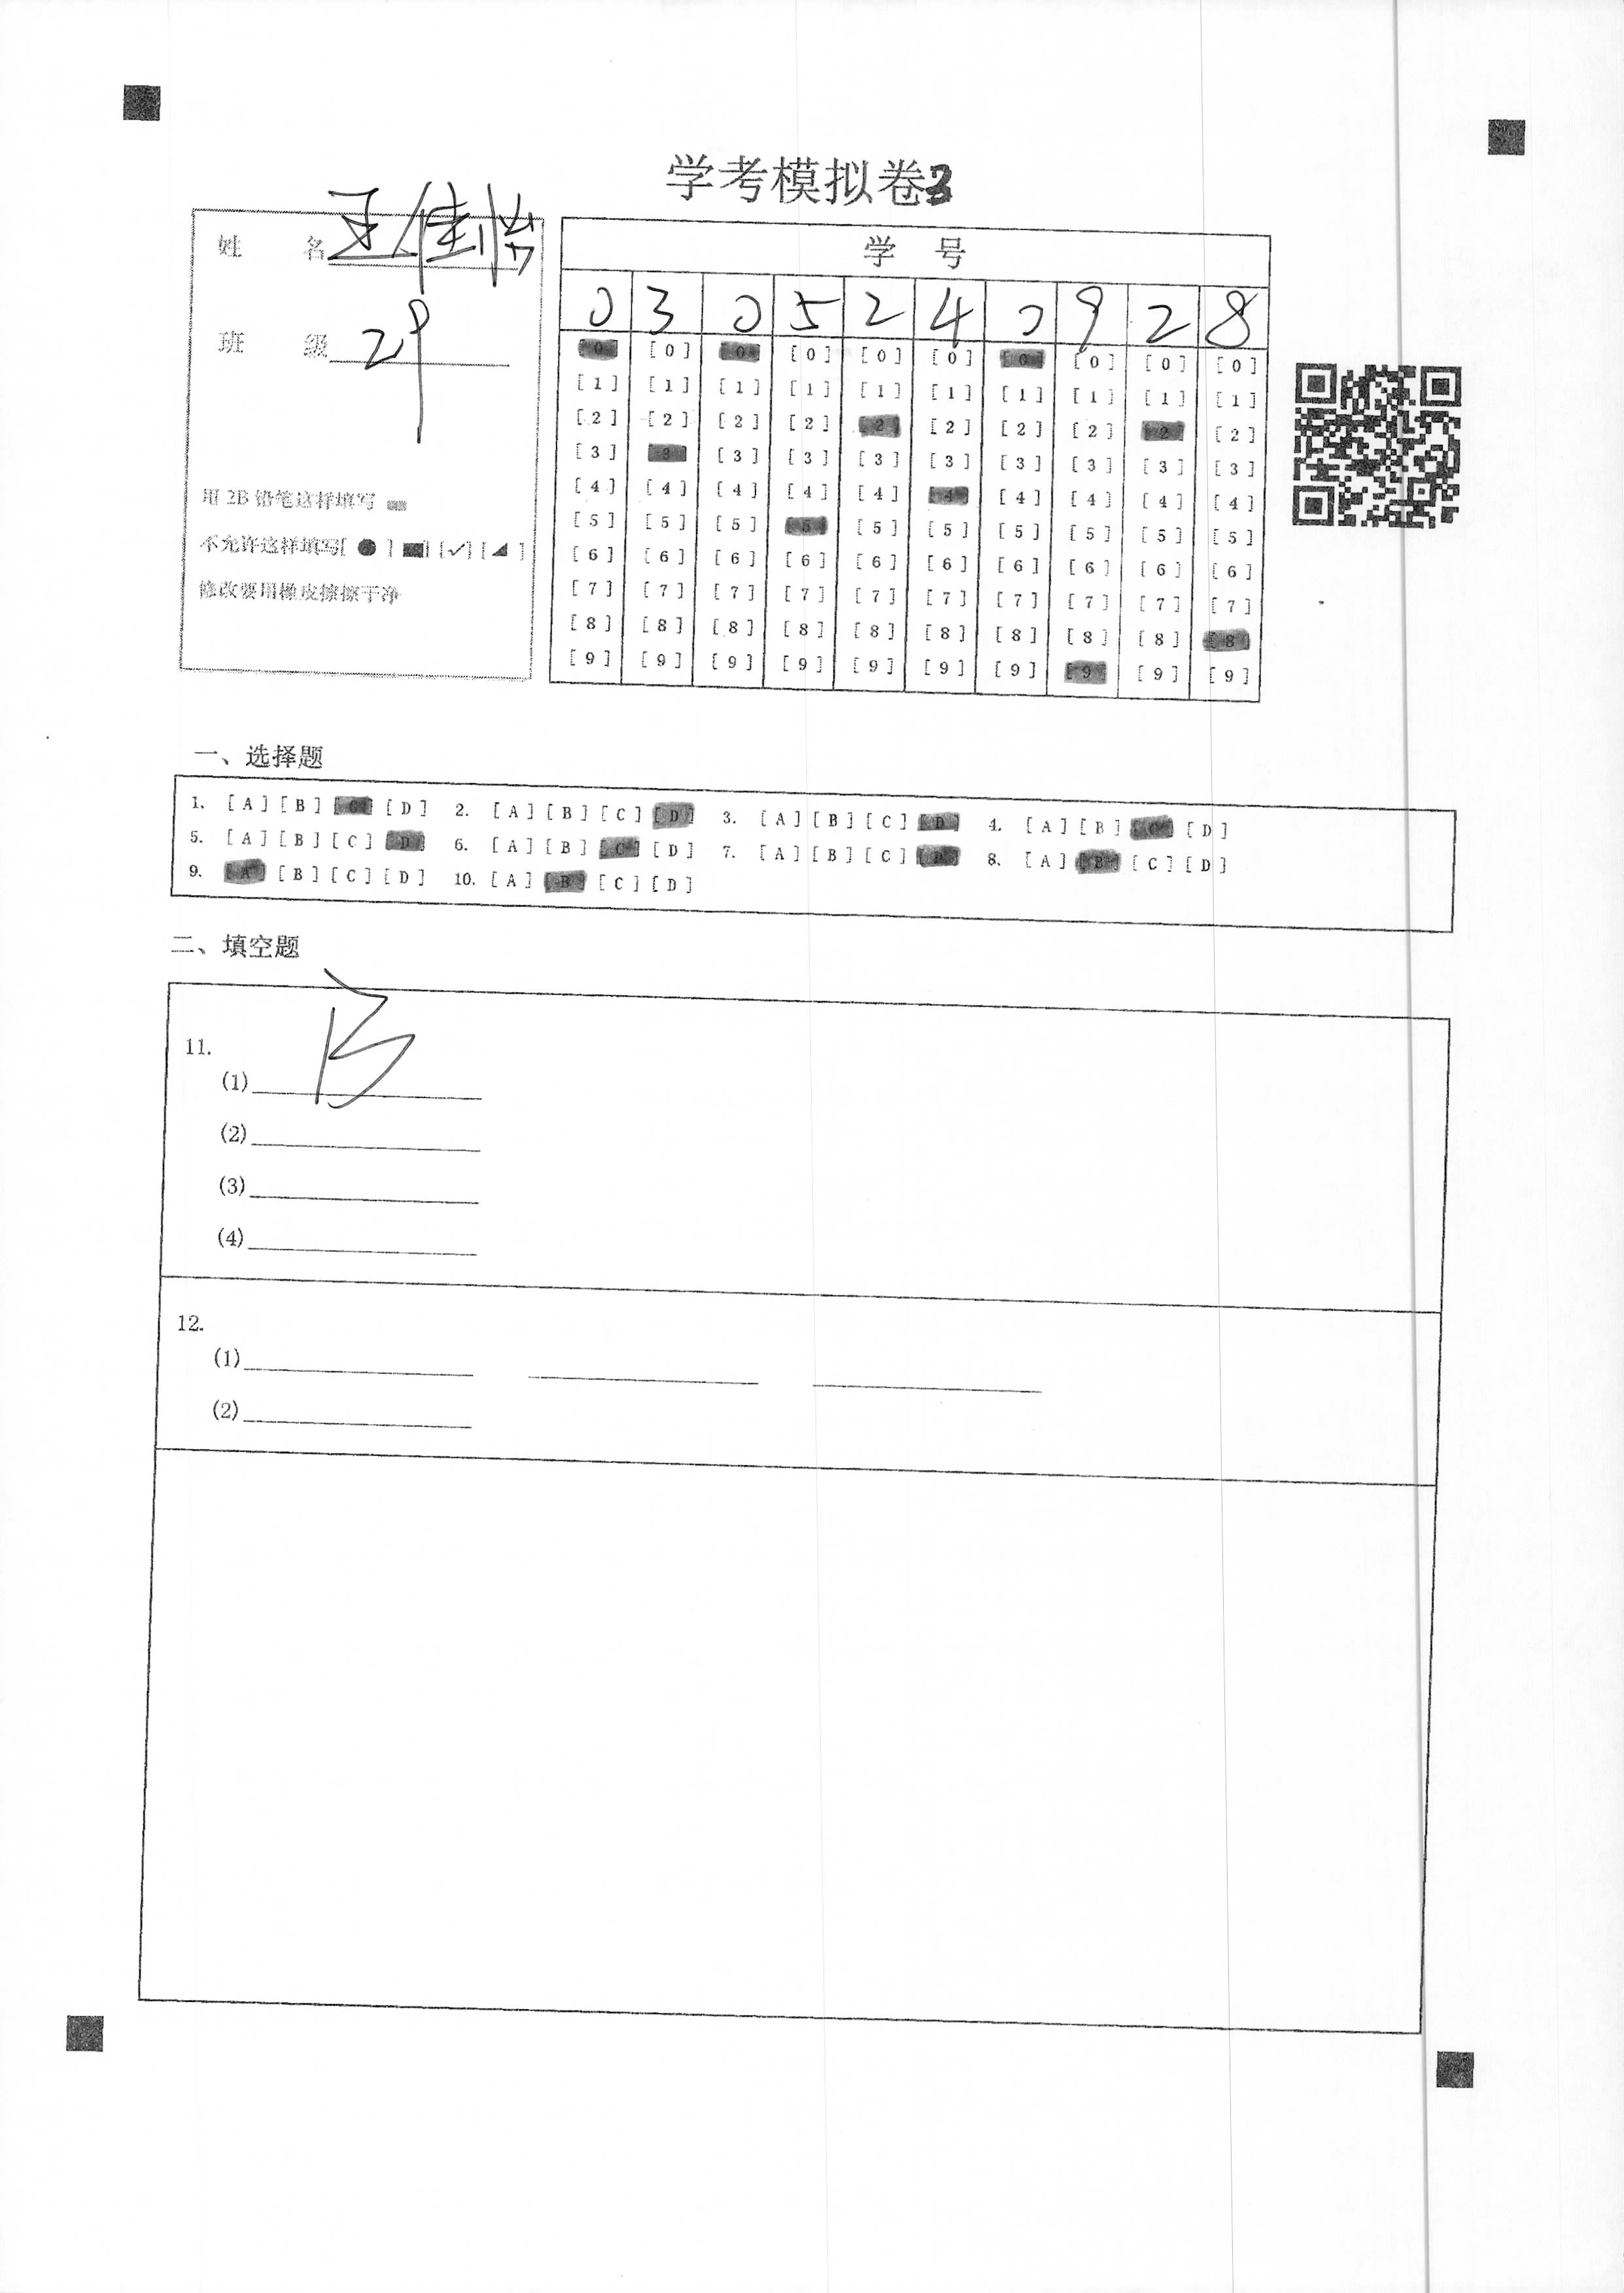 学考模拟卷3
姓 名 王佳怡
班 级 29
用 2B 铅笔这样填写
不允许这样填写[ ● ] [■] [✓] [◢ ]
修改要用橡皮擦擦干净
学 号
0 3 0 5 2 4 0 9 2 8
[0] [0] [0] [0] [0] [0] [0] [0] [0] [0]
[1] [1] [1] [1] [1] [1] [1] [1] [1] [1]
[2] [2] [2] [2] [2] [2] [2] [2] [2] [2]
[3] [3] [3] [3] [3] [3] [3] [3] [3] [3]
[4] [4] [4] [4] [4] [4] [4] [4] [4] [4]
[5] [5] [5] [5] [5] [5] [5] [5] [5] [5]
[6] [6] [6] [6] [6] [6] [6] [6] [6] [6]
[7] [7] [7] [7] [7] [7] [7] [7] [7] [7]
[8] [8] [8] [8] [8] [8] [8] [8] [8] [8]
[9] [9] [9] [9] [9] [9] [9] [9] [9] [9]
一、选择题
1. [A] [B] [C] [D] 2. [A] [B] [C] [D] 3. [A] [B] [C] [D] 4. [A] [B] [C] [D]
5. [A] [B] [C] [D] 6. [A] [B] [C] [D] 7. [A] [B] [C] [D] 8. [A] [B] [C] [D]
9. [A] [B] [C] [D] 10. [A] [B] [C] [D]
二、填空题
11.
(1) B
(2)
(3)
(4)
12.
(1)
(2)